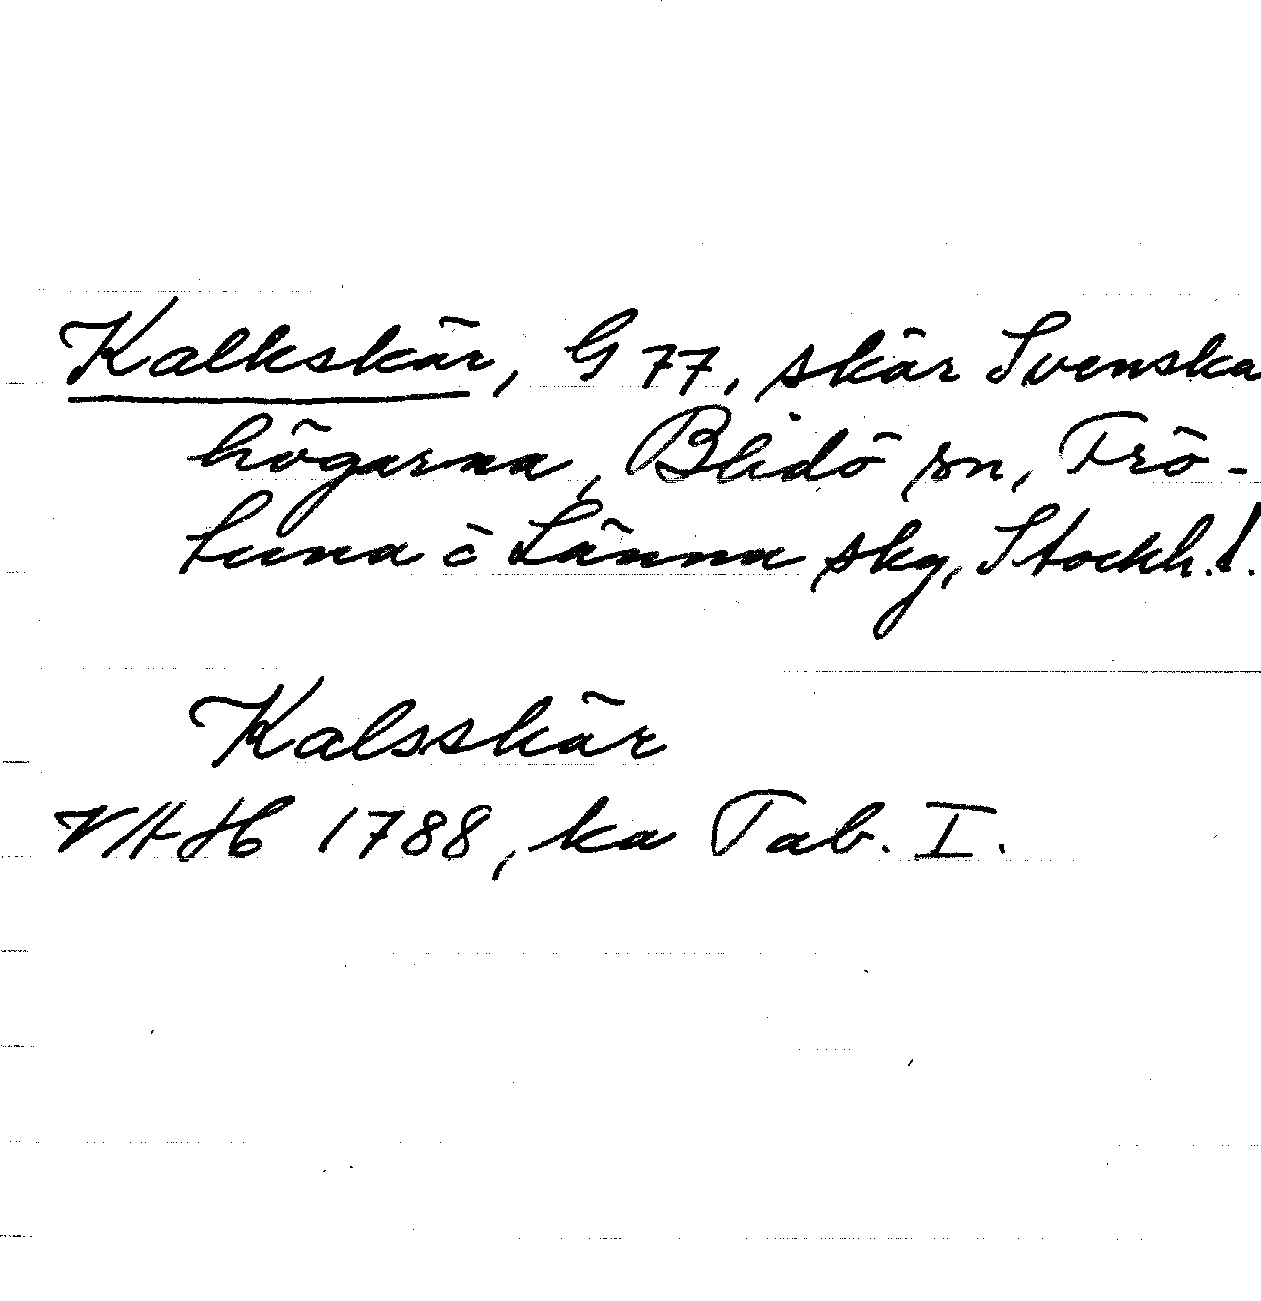 Kalkskär, G 77, skär Svenska
högarna, Blidö sn, Frö-
tuna o Länna skg, Stockh. l.
Kalsskär
VAH 1788, ka Tab. I.